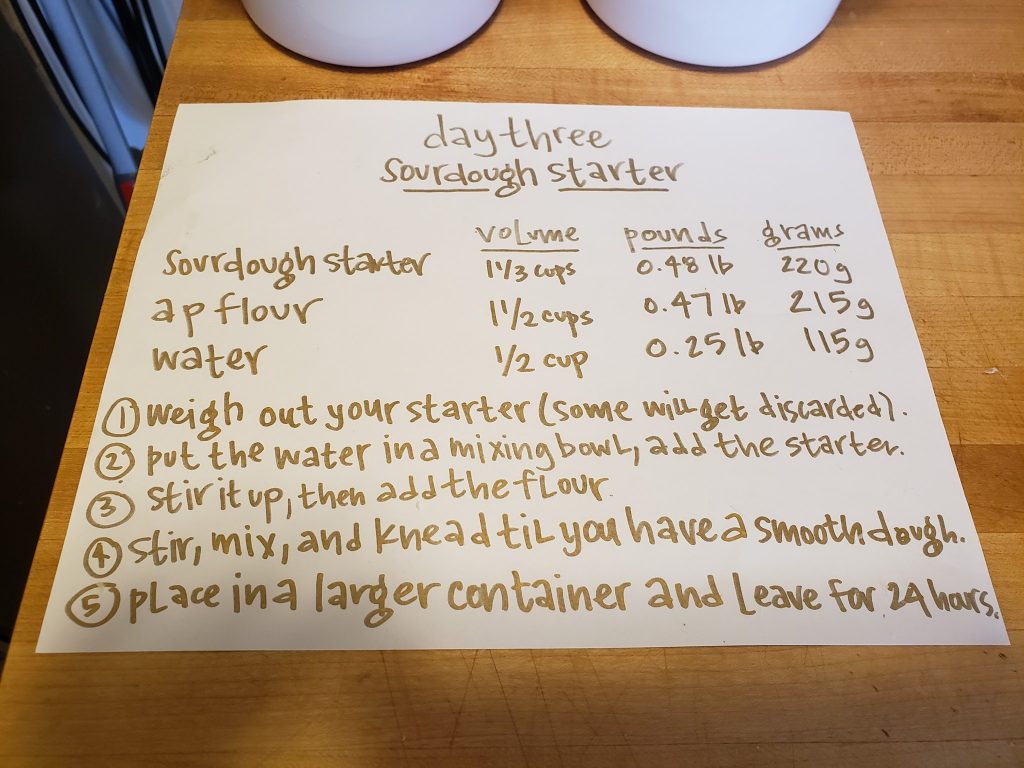 day three
sourdough starter
volume pounds grams
sourdough starter 1 1/3 cups 0.48 lb 220g
ap flour 1 1/2 cups 0.47 lb 215g
water 1/2 cup 0.25 lb 115g
① weigh out your starter (some will get discarded).
② put the water in a mixing bowl, add the starter.
③ stir it up, then add the flour.
④ stir, mix, and knead til you have a smooth dough.
⑤ place in a larger container and leave for 24 hours.